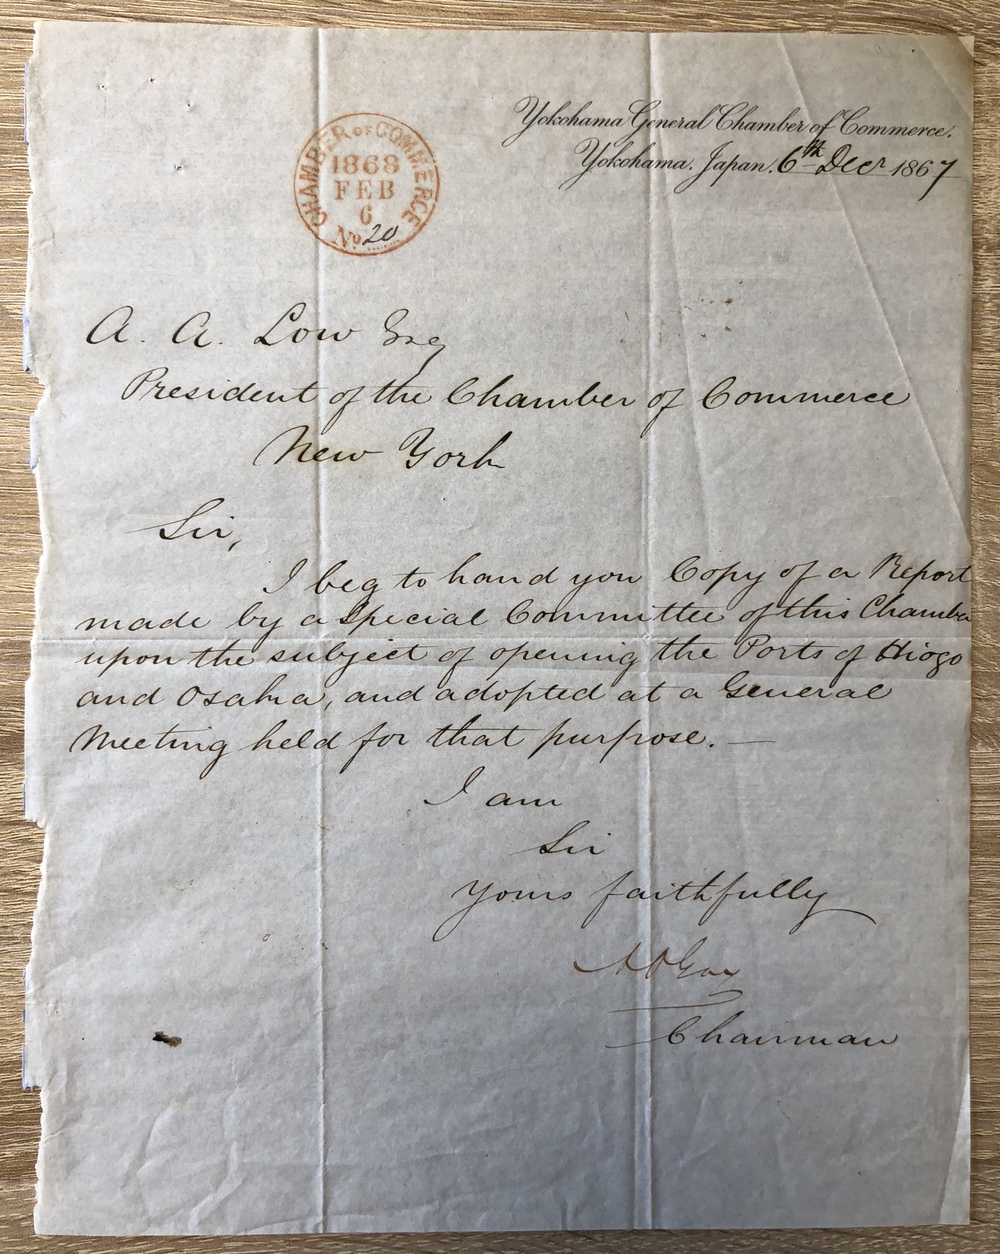 Yokohama General Chamber of Commerce.
Yokohama. Japan. 6th Decr 1867
CHAMBER OF COMMERCE
1868
FEB
6
No 20
A. A. Low Esq
President of the Chamber of Commerce
New York
Sir,
I beg to hand you Copy of a Report
made by a Special Committee of this Chamber
upon the subject of opening the Ports of Hiogo
and Osaka, and adopted at a General
Meeting held for that purpose. —
I am
Sir
Yours faithfully
Chairman